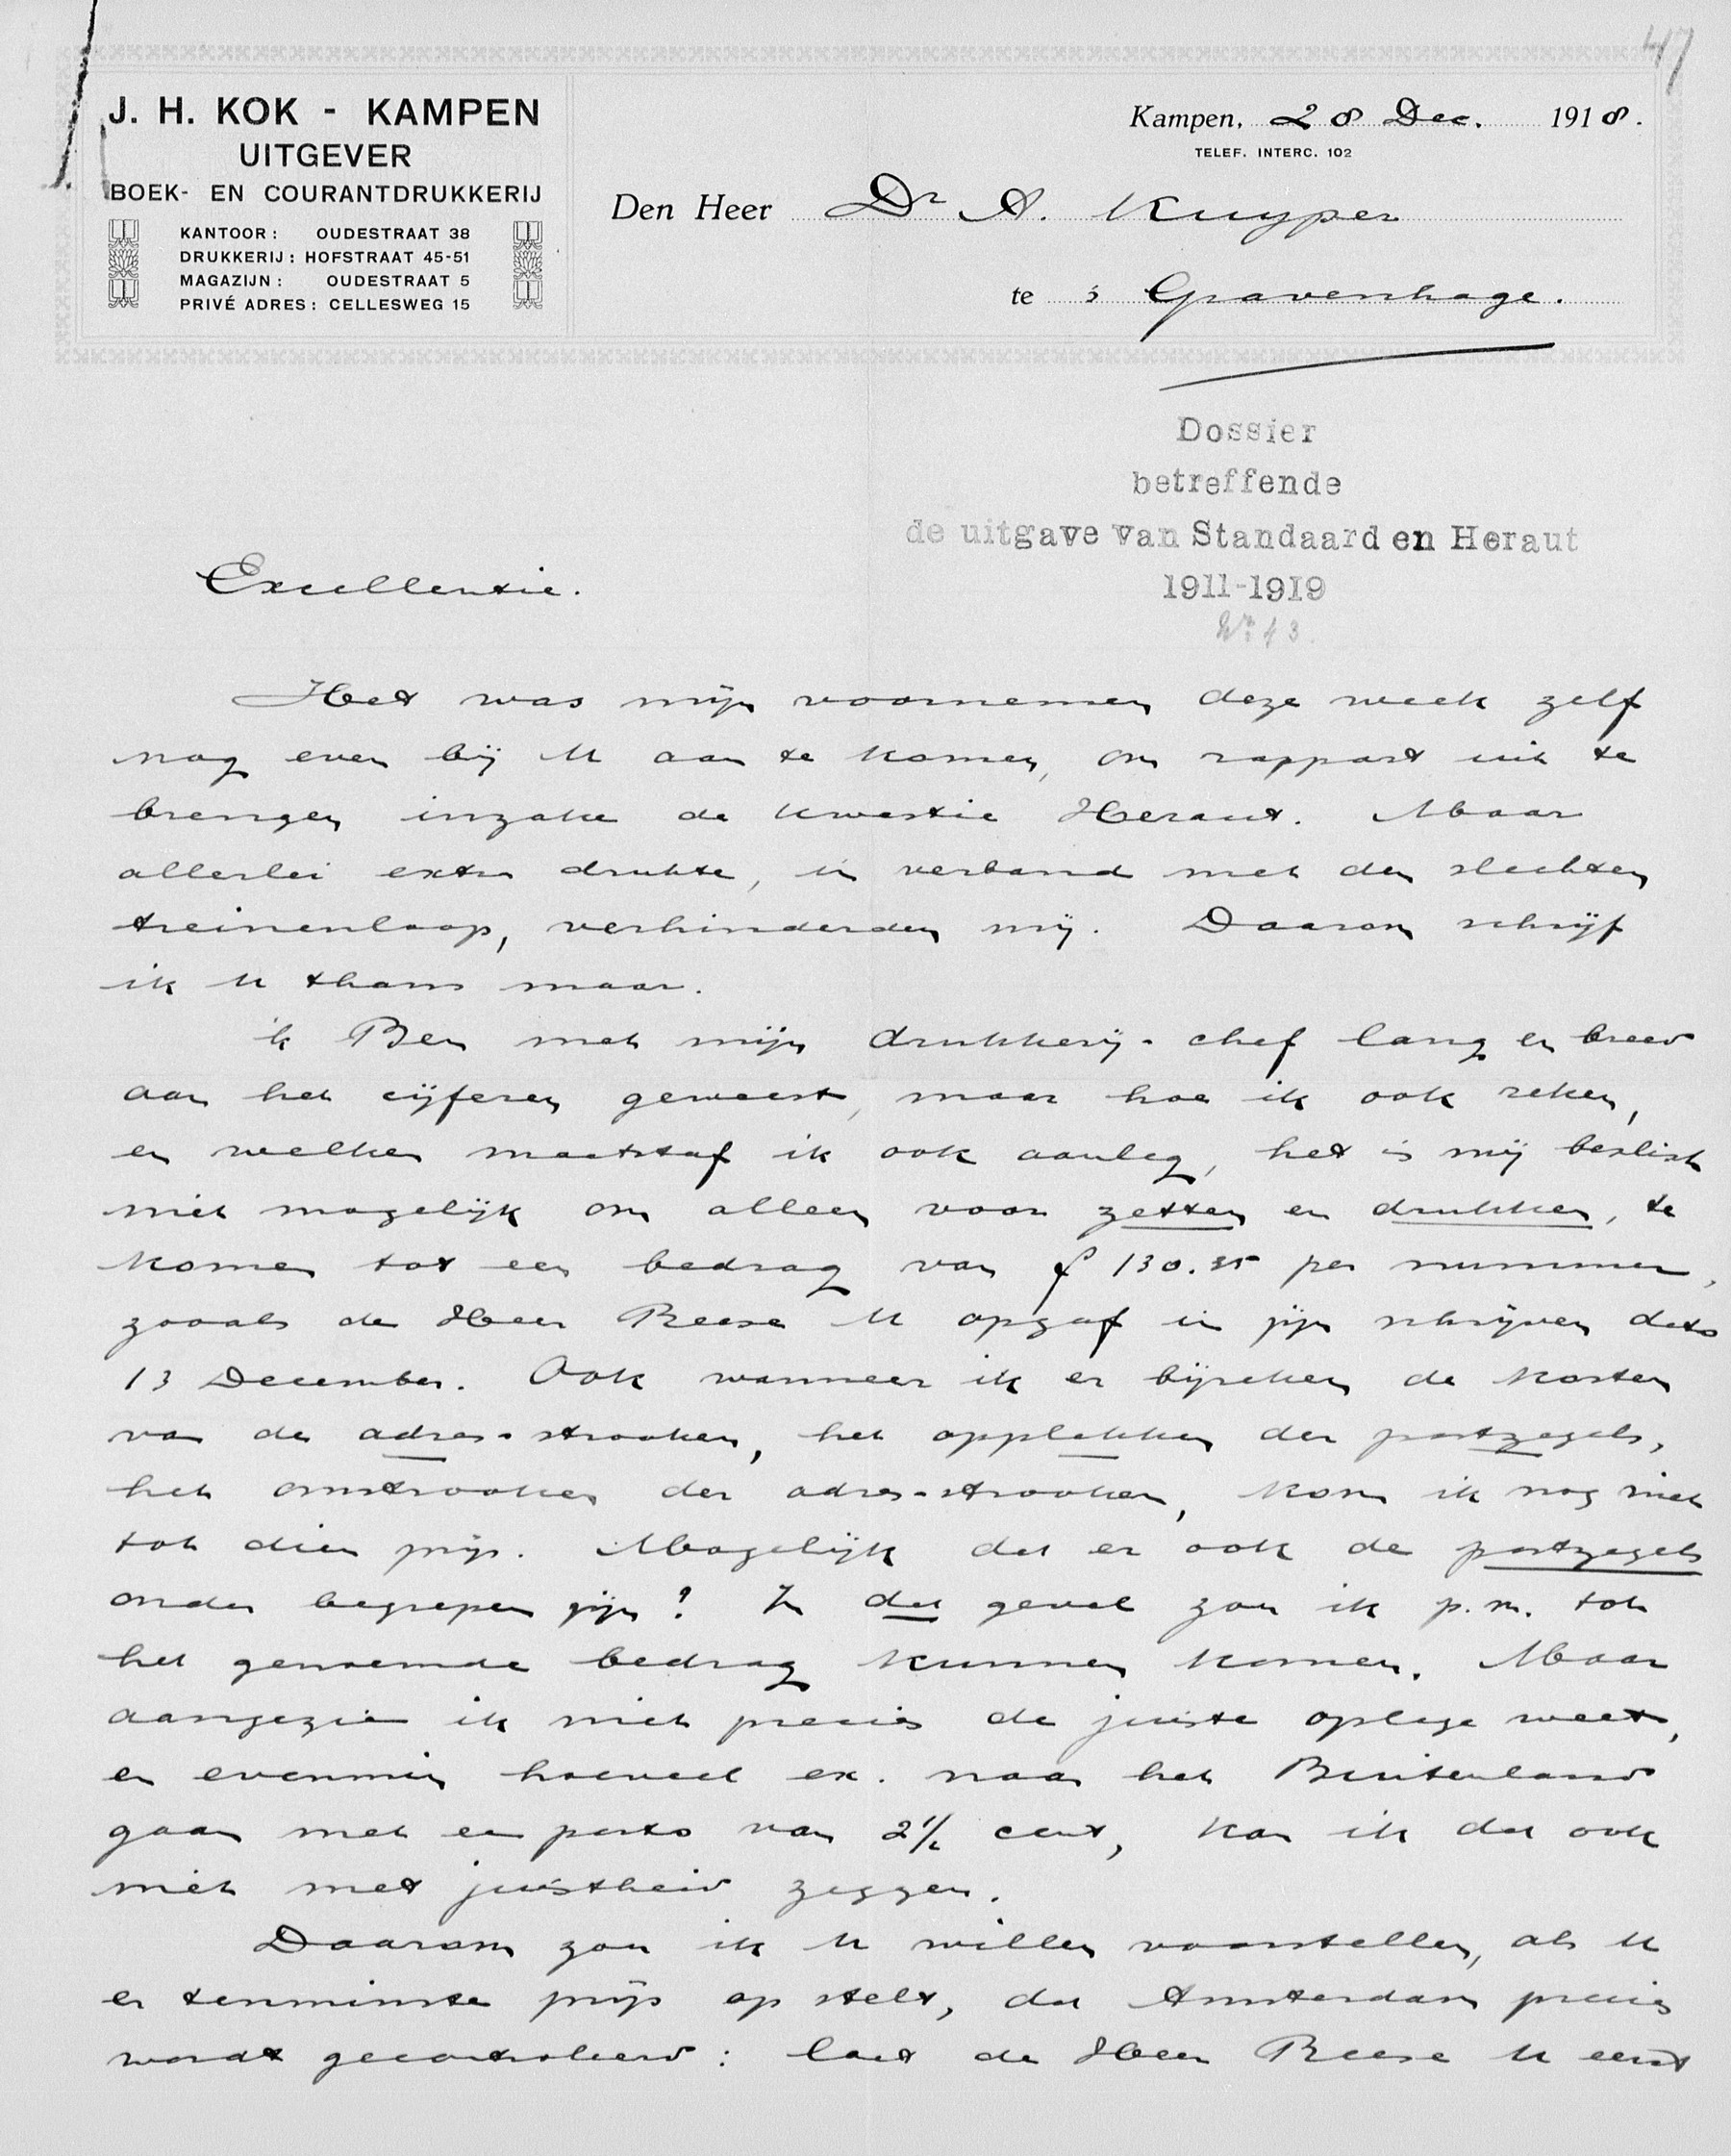 47
J. H. KOK - KAMPEN
UITGEVER
BOEK- EN COURANTDRUKKERIJ
KANTOOR: OUDESTRAAT 38
DRUKKERIJ: HOFSTRAAT 45-51
MAGAZIJN: OUDESTRAAT 5
PRIVÉ ADRES: CELLESWEG 15
Kampen, 28 Dec. 1918.
TELEF. INTERC. 102
Den Heer Dr A. Kuyper
te 's Gravenhage.
Dossier
betreffende
de uitgave van Standaard en Heraut
1911-1919
No 43.
Excellentie.
Het was mijn voornemen deze week zelf
nog even bij U aan te komen, om rapport uit te
brengen inzake de kwestie Heraut. Maar
allerlei extra drukte, in verband met den slechten
treinenloop, verhinderden mij. Daarom schrijf
ik U thans maar.
ik Ben met mijn drukkerij-chef lang en breed
aan het cijferen geweest, maar hoe ik ook reken,
en welken maatstaf ik ook aanleg, het is mij beslist
niet mogelijk om alleen voor zetten en drukken, te
komen tot een bedrag van f 130.35 per nummer,
zooals de Heer Reese U opgaf in zijn schrijven dato
13 December. Ook wanneer ik er bijreken de kosten
van de adres-strooken, het opplakken der postzegels,
het omstrooken der adres-strooken, kom ik nog niet
tot dien prijs. Mogelijk dat er ook de postzegels
onder begrepen zijn? In dat geval zou ik p.m. tot
het genoemde bedrag kunnen komen. Maar
aangezien ik niet precies de juiste oplage weet,
en evenmin hoeveel ex. naar het Buitenland
gaan met een porto van 2½ cent, kan ik dat ook
niet met juistheid zeggen.
Daarom zou ik U willen voorstellen, als U
er tenminste prijs op stelt, dat Amsterdam precies
wordt gecontroleerd: laat de Heer Reese U eerst